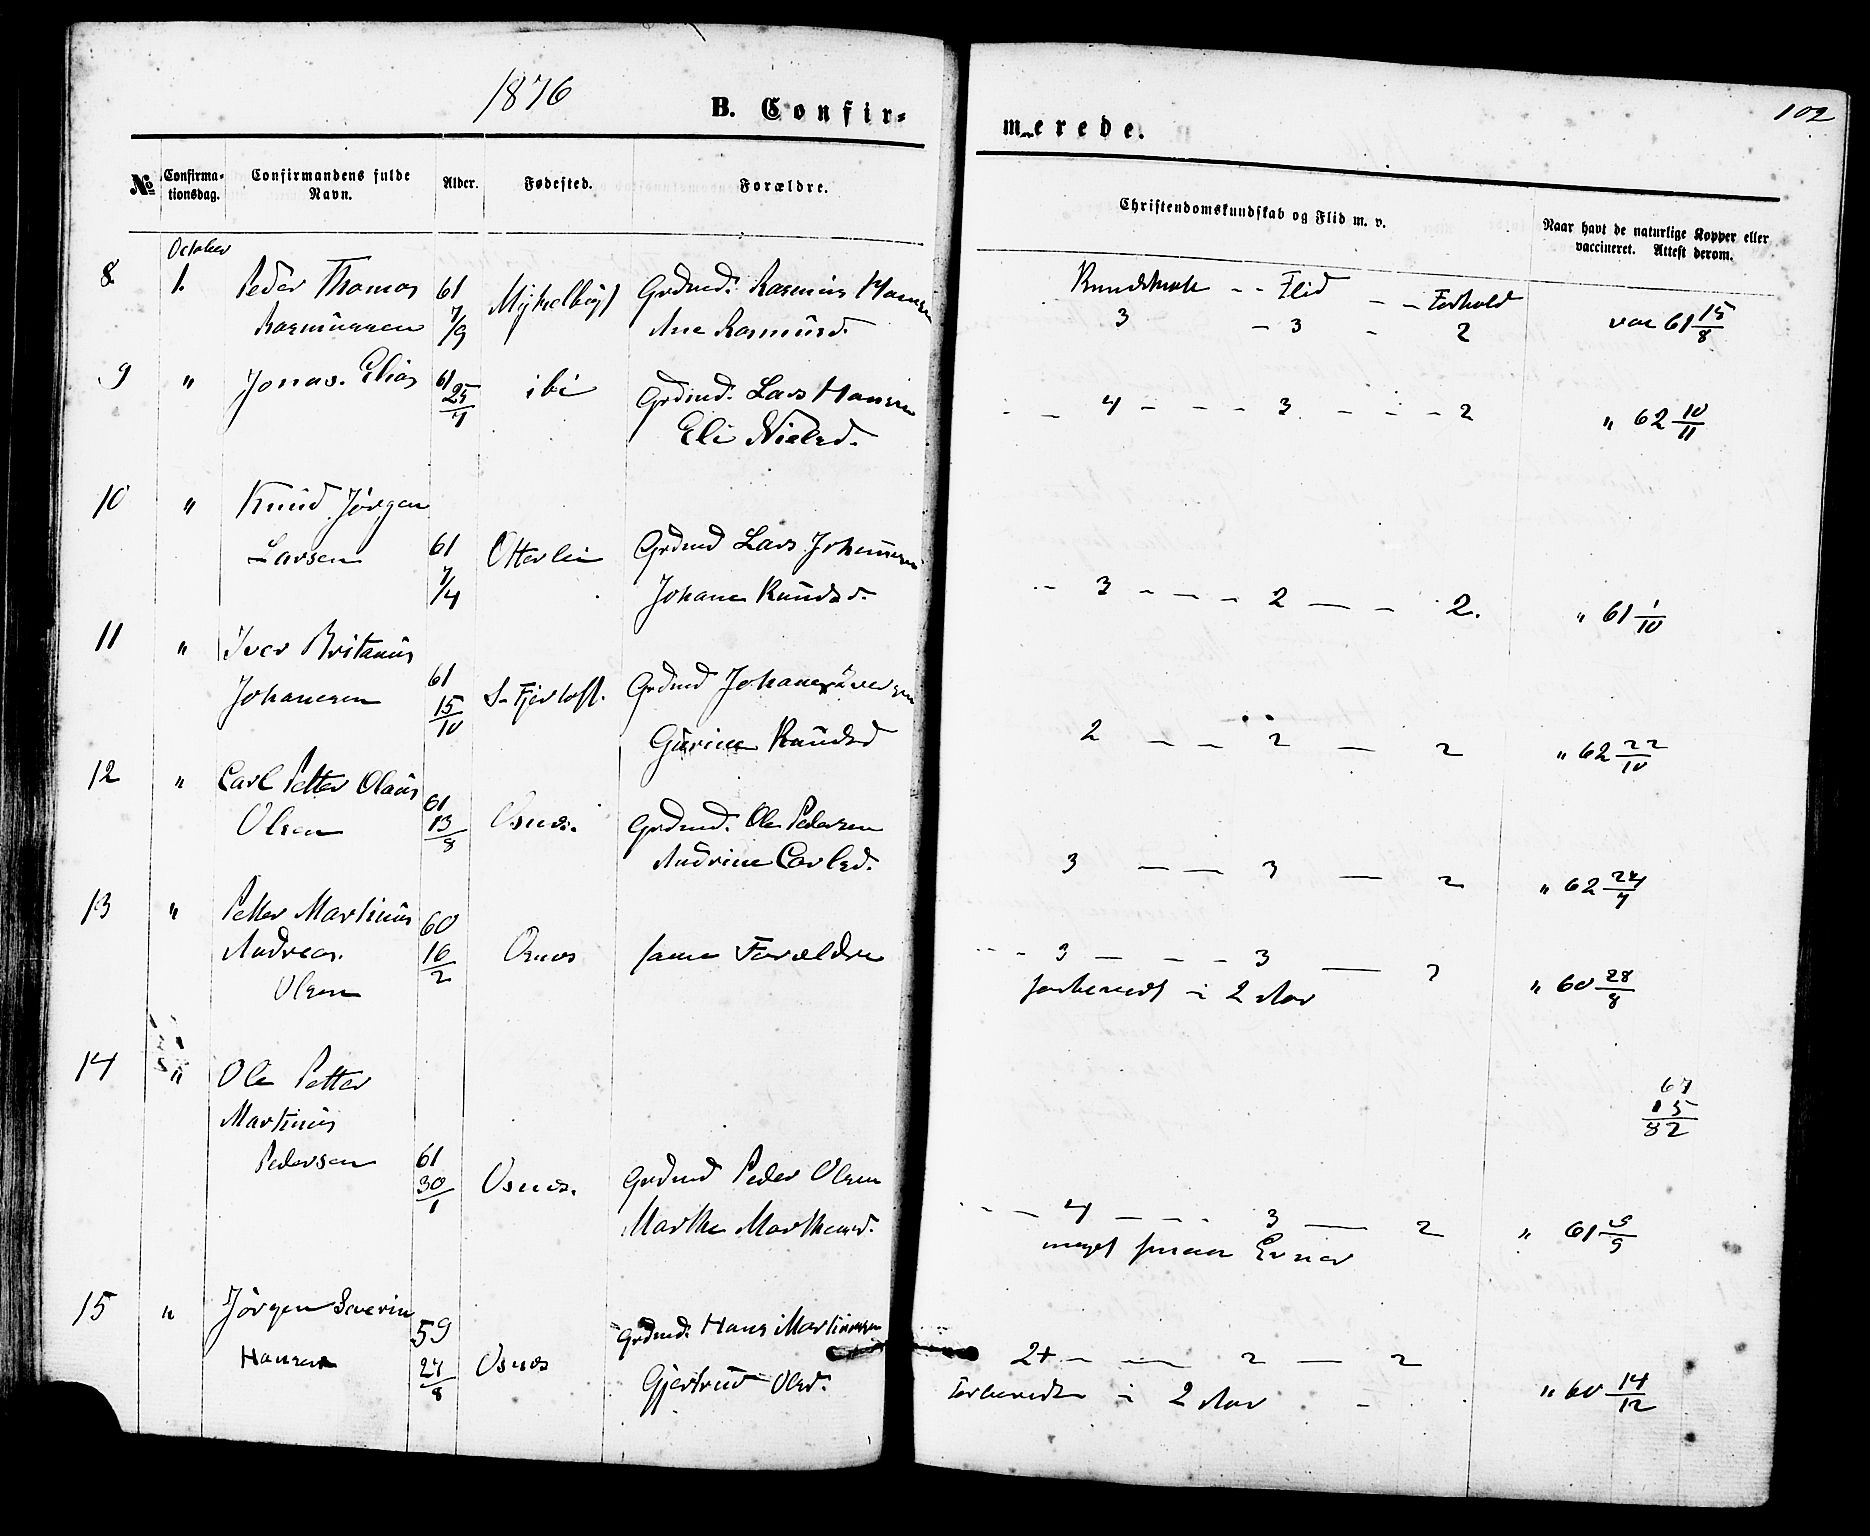 1876
B. Confir=
merede.
102
No
Confirma-
tionsdag.
Confirmandens fulde
Navn.
Alder.
Fødested.
Forældre.
Christendomskundskab og Flid m. v.
Naar havt de naturlige Kopper eller
vaccineret. Attest derom.
October
8 1. Peder Thomas 61 Myhelbøst Grdmd. Rasmus Hansen Kundskab - - Flid - - Forhold
Rasmussen 7/9 Ane Rasmusd. 3 - 3 - 2 vac 61 15/8
9 " Jonas Elias 61 25/4 ibi Grdmd. Lars Hansen - - 4 - - - 3 - - - 2 " 62 10/11
Eli Nielsd.
10 " Knud Jørgen
Larsen 61 Otterlei Grdmd Lars Johannesen
7/4 Johane Knudsd. - 3 - - - 2 - - 2. " 61 1/10
11 " Iver Britanus
Johanesen 61 15/10 S. Fjertoft. Grdmd Johanes Iversen
Gurine Knudsd 2 - - 2 - 2 " 62 22/10
12 " Carl Petter Olaus
Olsen 61 13/8 Osnes. Grdmd. Ole Pedersen
Andrine Carlsd. 3 - - 3 - 2 " 62 24/7
13 " Petter Martinus 60
Andreas. 16/2 Osnes samme Forældre - - 3 - - - 3 - 2
Olsen forberedt i 2 Aar " 60 28/8
14 " Ole Petter
Martinus
67
15
82
Pedersen 61 30/1 Osnes. Grdmd Peder Olsen
Marthe Marthensd. - - 4 - - - 3 - 2 " 61 5/9
meget smaa Evner
15 " Jørgen Severin 59 Grdmd. Hans Martinusen
Hansen 27/8 Osnes Gjertrud Olsd. 2+ - - 2 - 2
forberedt i 2 Aar " 60 14/12